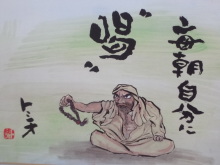 毎朝自分に
“喝”
トミオ